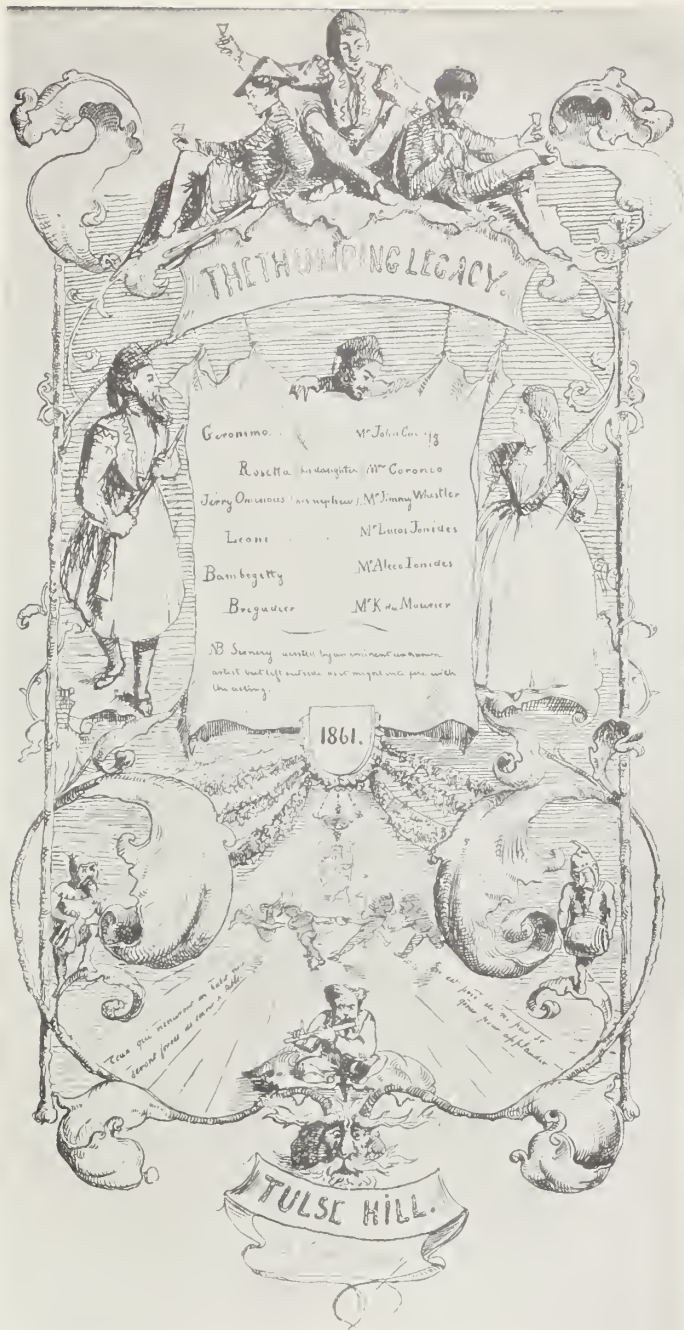 THE THUMPING LEGACY.
Geronimo. Mr John
Rosetta his daughter Mrs Coronio
Jerry Ominous (his nephew). Mr Jimmy Whistler
Leoni Mr Lucas Ionides
Bambogetty Mr Aleco Ionides
Brigadier Mr K du Maurier
NB Scenery painted by an eminent unknown
artist but left outside as it might interfere with
the acting.
1861.
Ceux qui n'auront un
seront forcés de
On est prié de ne pas se
gêner pour applaudir
TULSE HILL.